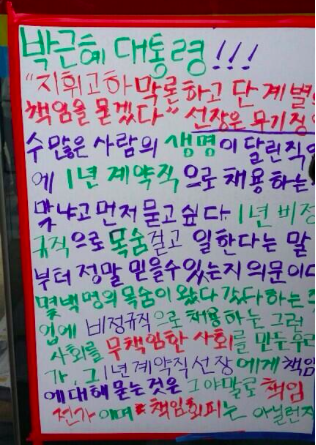 박근혜 대통령 !!!
"지휘고하 막론하고 단계별
책임을 묻겠다" 선장은 무기징
수많은 사람의 생명이 달린 직
에 1년 계약직으로 채용하는
맞냐고 먼저 묻고 싶다 1년 비정
규직으로 목숨걸고 일한다는 말
부터 정말 믿을수 있는지 의문이다
몇백명의 목숨이 왔다 갔다하는
업에 비정규직으로 채용하는 그런
사회를 무책임한 사회를 만든 우리
가, 그 1년 계약직 선장에게 책임
에 대해 묻는 것은 그야말로 책임
전가이며 책임회피는 아닐런지